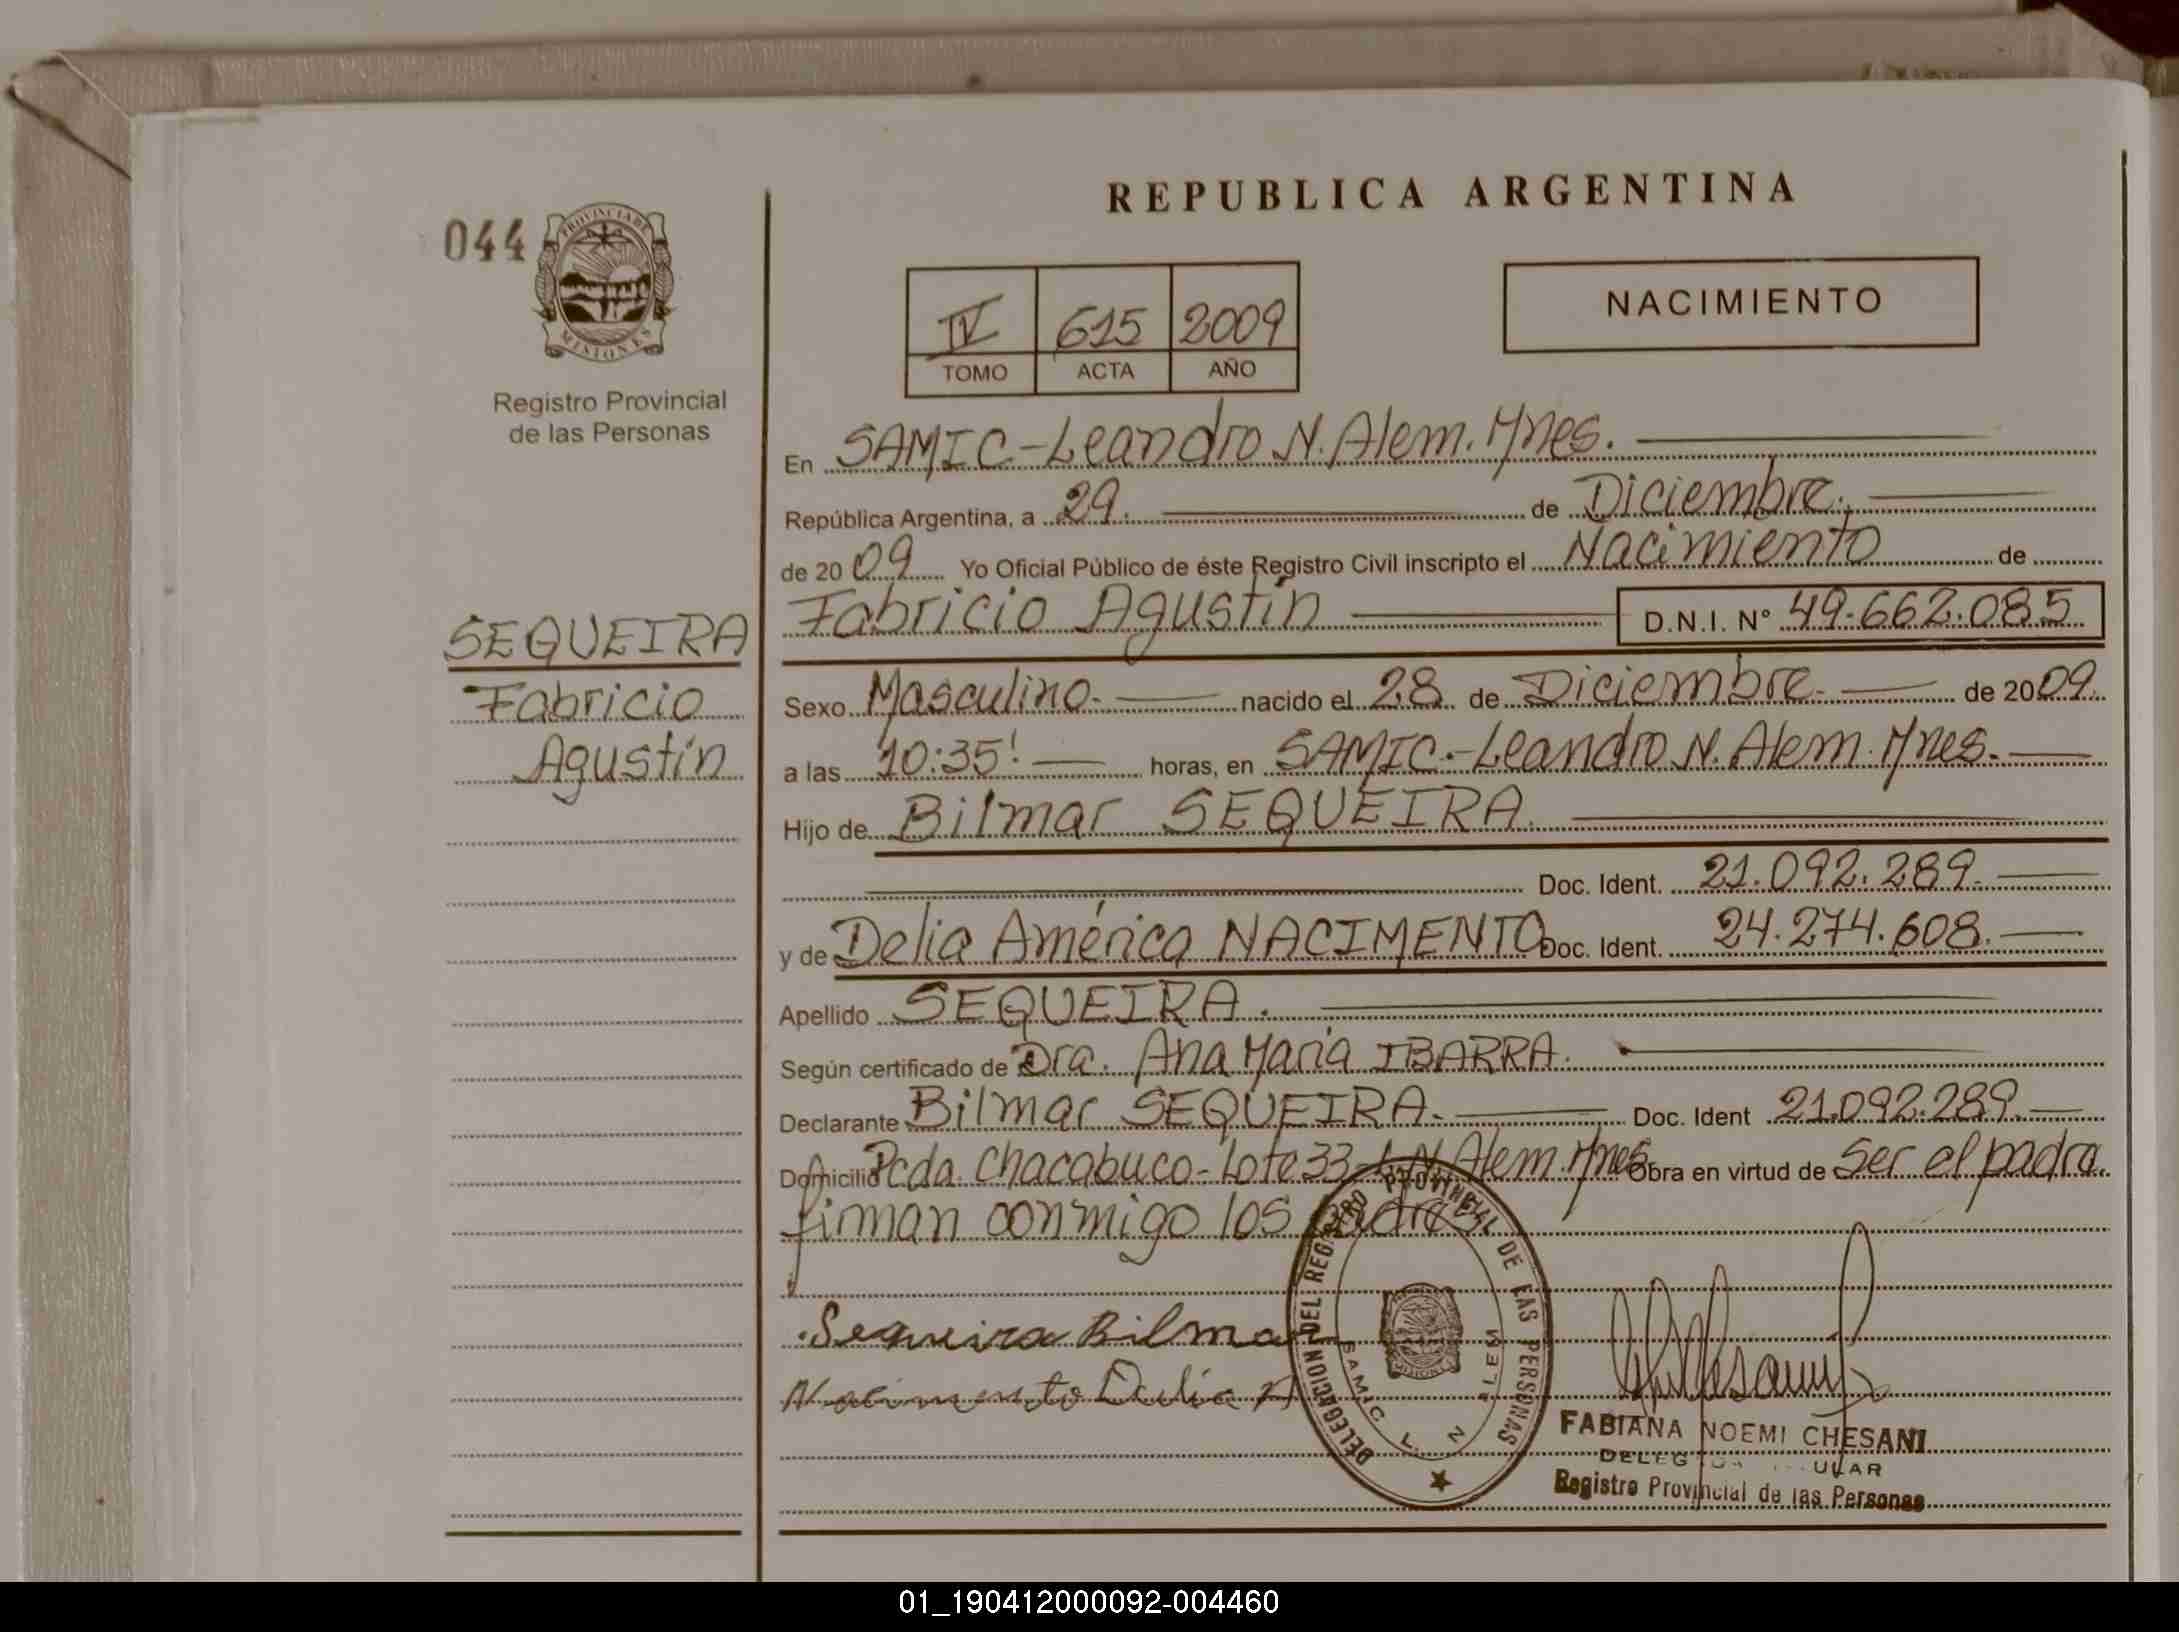 REPUBLICA ARGENTINA
044
PROVINCIA DE
MISIONES
Registro Provincial
de las Personas
IV 615 2009
TOMO ACTA AÑO
NACIMIENTO
En SAMIC-Leandro N. Alem. Mnes.
República Argentina, a 29. de Diciembre.
de 20 09 Yo Oficial Público de éste Registro Civil inscripto el Nacimiento de
Fabricio Agustín D.N.I. N° 49.662.085
SEQUEIRA
Fabricio
Agustín
Sexo Masculino. nacido el 28 de Diciembre. de 20 09.
a las 10:35' horas, en SAMIC.-Leandro N. Alem. Mnes.
Hijo de Bilmar SEQUEIRA.
Doc. Ident. 21.092.289.
y de Delia América NACIMENTO Doc. Ident. 24.274.608.
Apellido SEQUEIRA.
Según certificado de Dra. Ana María IBARRA.
Declarante Bilmar SEQUEIRA. Doc. Ident 21.092.289.
Domicilio Pcda. Chacabuco-Lote 33-L.N.Alem.Mnes. Obra en virtud de Ser el padre.
firman conmigo los padres
Sequeira Bilmar
Nacimento Delia A
DELEGACION DEL REGISTRO PROVINCIAL DE LAS PERSONAS
SAMIC L. N ALEM
MISIONES
FABIANA NOEMI CHESANI
Registro Provincial de las Personas
01_190412000092-004460